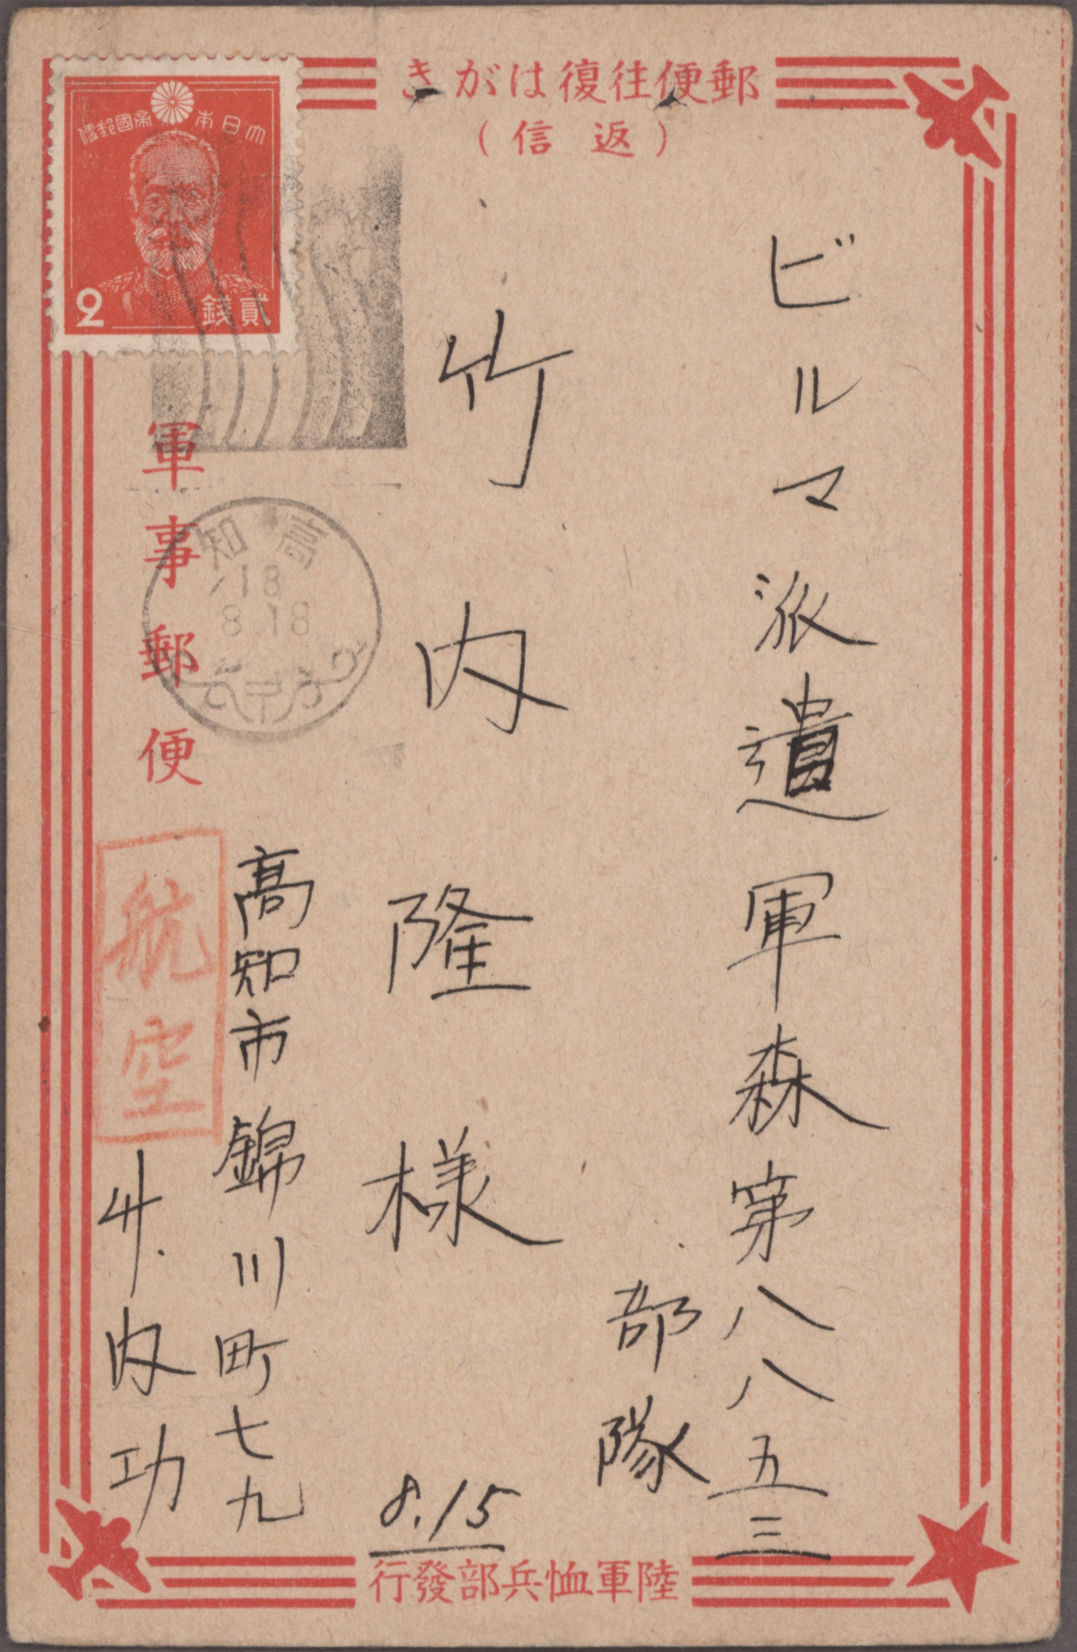 郵便往復はがき
(返信)
大日本帝國郵便
2
貳錢
軍事郵便
高知
18
8.18
航空
ビルマ派遣軍森第八八五三
部隊
竹内隆様
8.15
高知市錦川町七九
竹内功
陸軍恤兵部發行